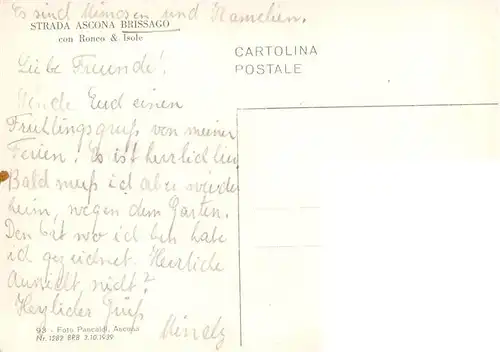 Es sind Mimosen und Kamelien.
STRADA ASCONA BRISSAGO
con Ronco & Isole
CARTOLINA
POSTALE
Liebe Freunde!
Sende Euch einen
Frühlingsgruß von meinen
Ferien! Es ist herrlich hier
Bald muß ich aber wieder
heim, wegen dem Garten.
Den Ort wo ich bin habe
ich gezeichnet. Herrliche
Aussicht, nicht?
Herzlicher Gruß
93 - Foto Pancaldi, Ascona
Nr. 1282 BRB 3.10.1939